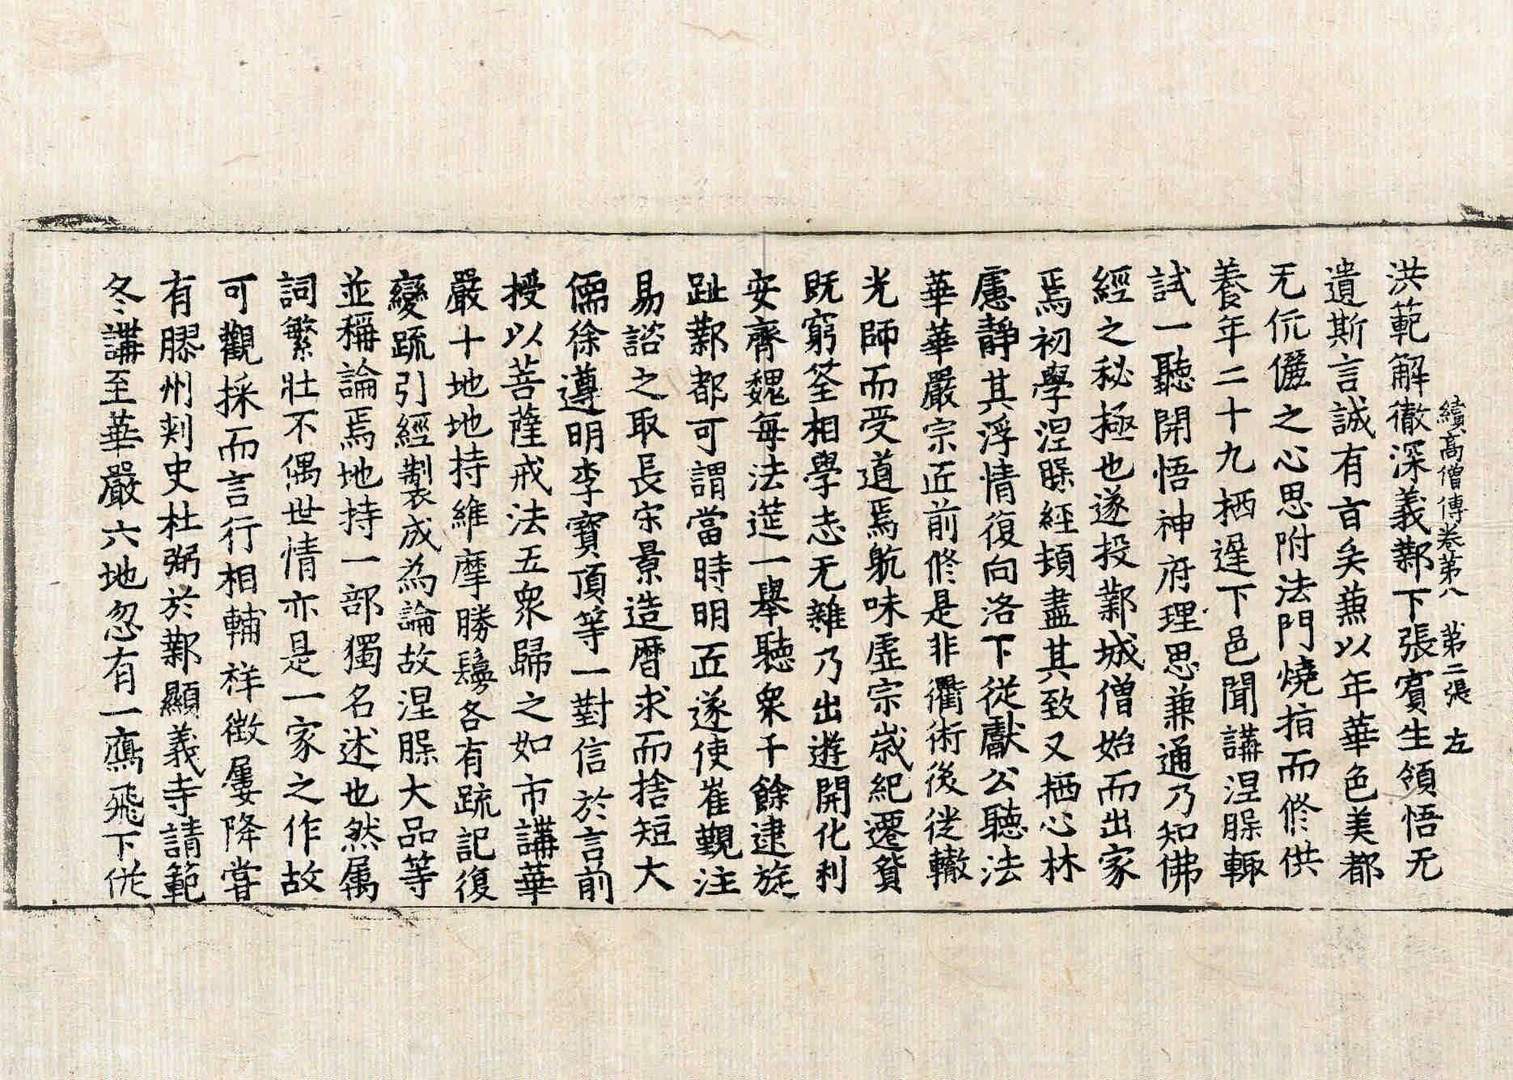 續高僧傳卷第八　第二張　左
洪範解徹深義鄴下張賓生領悟无
遺斯言誠有旨矣蕭以年華色美都
无伉儷之心思附法門燒指而修供
養年二十九栖遲下邑聞講涅槃輙
試一聽開悟神府理思兼通乃知佛
經之秘極也遂投鄴城僧始而出家
焉初學涅槃經頓盡其致又栖心林
慮靜其浮情復向洛下從獻公聽法
華華嚴宗匠前修是非衢術後徙轍
光師而受道焉航味虛宗歲紀遷貿
既窮筌相學志无雜乃出遊開化利
安齊魏每法莚一舉聽衆千餘逮旋
趾鄴都可謂當時明匠遂使崔覲注
易諮之取長宋景造曆求而捨短大
儒徐遵明李寶頂等一對信於言前
授以菩薩戒法五衆歸之如市講華
嚴十地地持維摩勝鬘各有疏記復
變疏引經製成為論故涅槃大品等
並稱論焉地持一部獨名述也然属
詞繁壯不偶世情亦是一家之作故
可觀採而言行相輔祥徵屢降嘗
有膠州刾史杜弼於鄴顯義寺請範
冬講至華嚴六地忽有一鴈飛下從